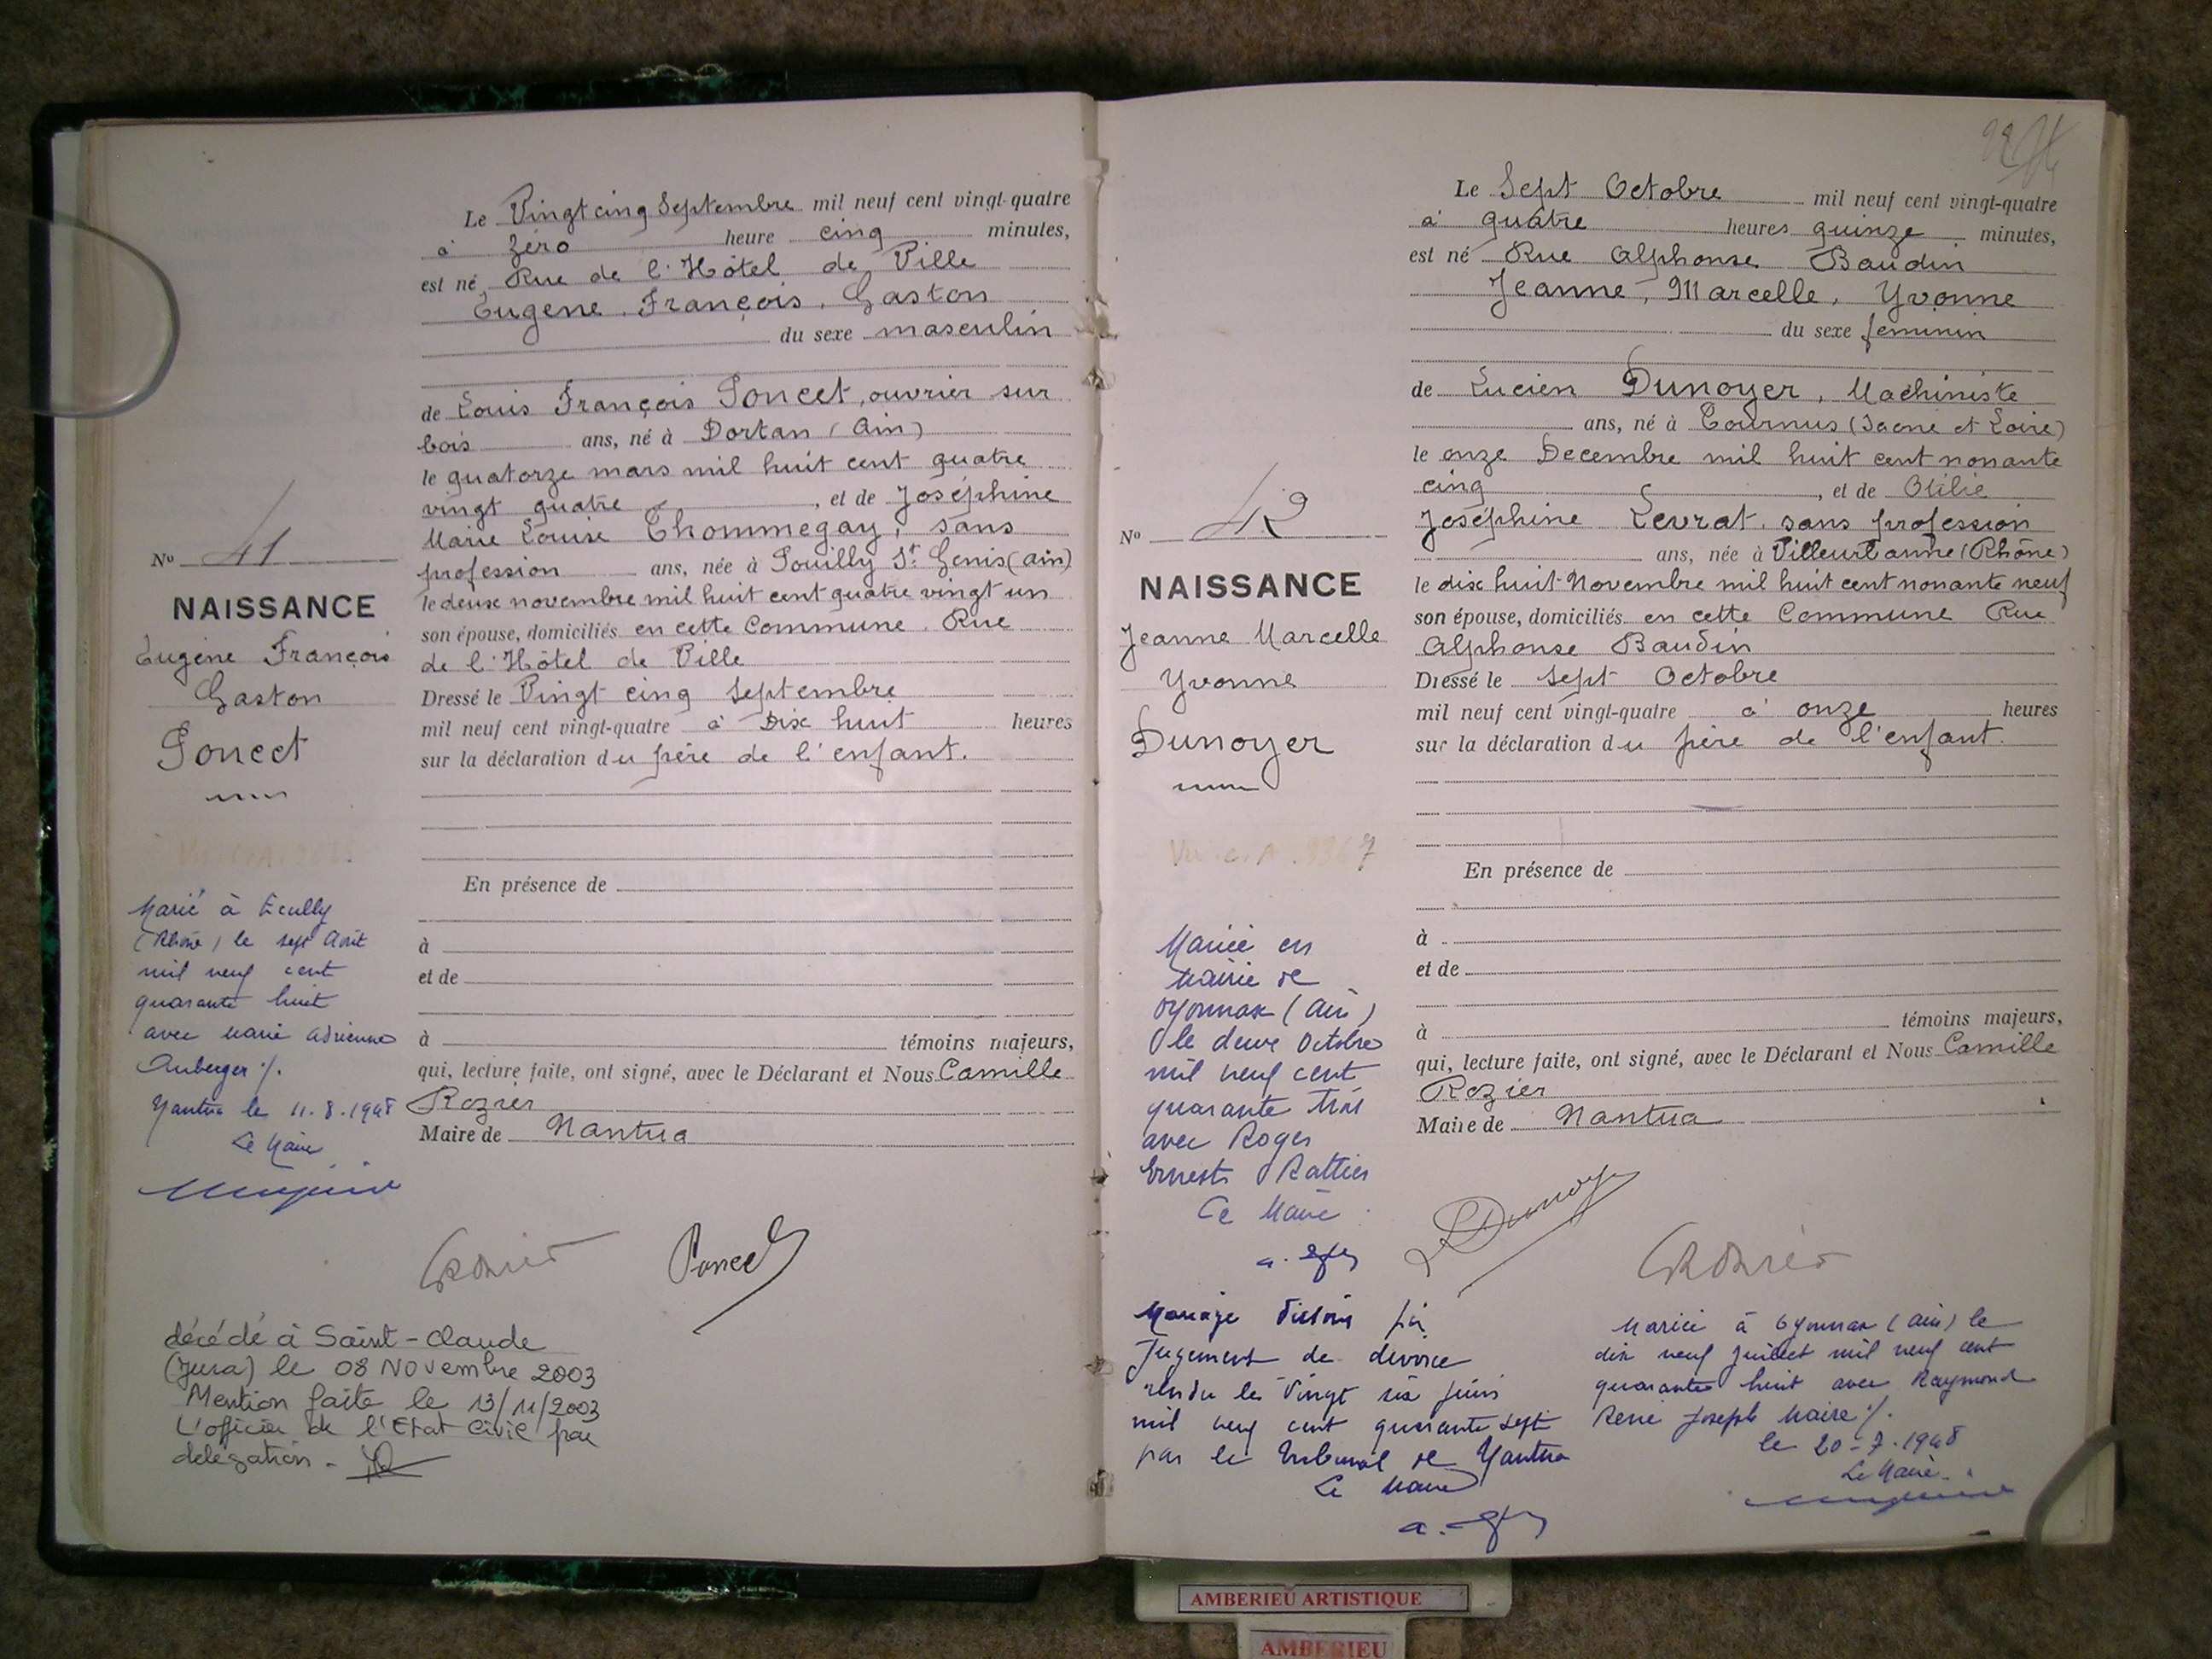 Le Vingt cinq Septembre mil neuf cent vingt-quatre
à Zéro heure cinq minutes,
est né Rue de l'Hôtel de Ville
Eugène, François, Gaston
du sexe masculin
de Louis François Poncet, ouvrier sur
bois ans, né à Dortan (Ain)
le quatorze mars mil huit cent quatre
vingt quatre, et de Joséphine
Marie Louise Thommegay, sans
profession ans, née à Pouilly St. Genis (Ain)
le deux novembre mil huit cent quatre vingt un
son épouse, domiciliés en cette Commune Rue
de l'Hôtel de Ville
Dressé le Vingt cinq Septembre
mil neuf cent vingt-quatre à Dix huit heures
sur la déclaration du père de l'enfant.
En présence de
à
et de
à témoins majeurs,
qui, lecture faite, ont signé, avec le Déclarant et Nous Camille
Rozier
Maire de Nantua
No 41
NAISSANCE
Eugène François
Gaston
Poncet
Marié à Ecully
(Rhône) le sept Août
mil neuf cent
quarante huit
avec Marie Adrienne
Auberger ./.
Nantua le 11.8.1948
Le Maire
Poncet
décédé à Saint-Claude
(Jura) le 08 Novembre 2003
Mention faite le 13/11/2003
L'officier de l'Etat Civil par
délégation -
Le Sept Octobre mil neuf cent vingt-quatre
à quatre heures quinze minutes,
est né Rue Alphonse Baudin
Jeanne, Marcelle, Yvonne
du sexe feminin
de Lucien Dunoyer, Machiniste
ans, né à Tournus (Saone et Loire)
le onze Decembre mil huit cent nonante
cinq, et de Otilie
Joséphine Levrat, sans profession
ans, née à Villeurbanne (Rhône)
le dix huit Novembre mil huit cent nonante neuf
son épouse, domiciliés en cette Commune Rue
Alphonse Baudin
Dressé le Sept Octobre
mil neuf cent vingt-quatre à onze heures
sur la déclaration du père de l'enfant.
En présence de
à
et de
à témoins majeurs,
qui, lecture faite, ont signé, avec le Déclarant et Nous Camille
Rozier
Maire de Nantua
No 42
NAISSANCE
Jeanne Marcelle
Yvonne
Dunoyer
Mariée en
Mairie de
Oyonnax (Ain)
le deux Octobre
mil neuf cent
quarante trois
avec Roger
Ernest Rattier
Le Maire
L Dunoyer
Mariage dissous par
Jugement de divorce
rendu le Vingt six juin
mil neuf cent quarante sept
par le Tribunal de Nantua
Le Maire
Mariée à Oyonnax (Ain) le
dix neuf Juillet mil neuf cent
quarante huit avec Raymond
René Joseph Maire ./.
le 20-7-1948
Le Maire
AMBERIEU ARTISTIQUE
AMBERIEU